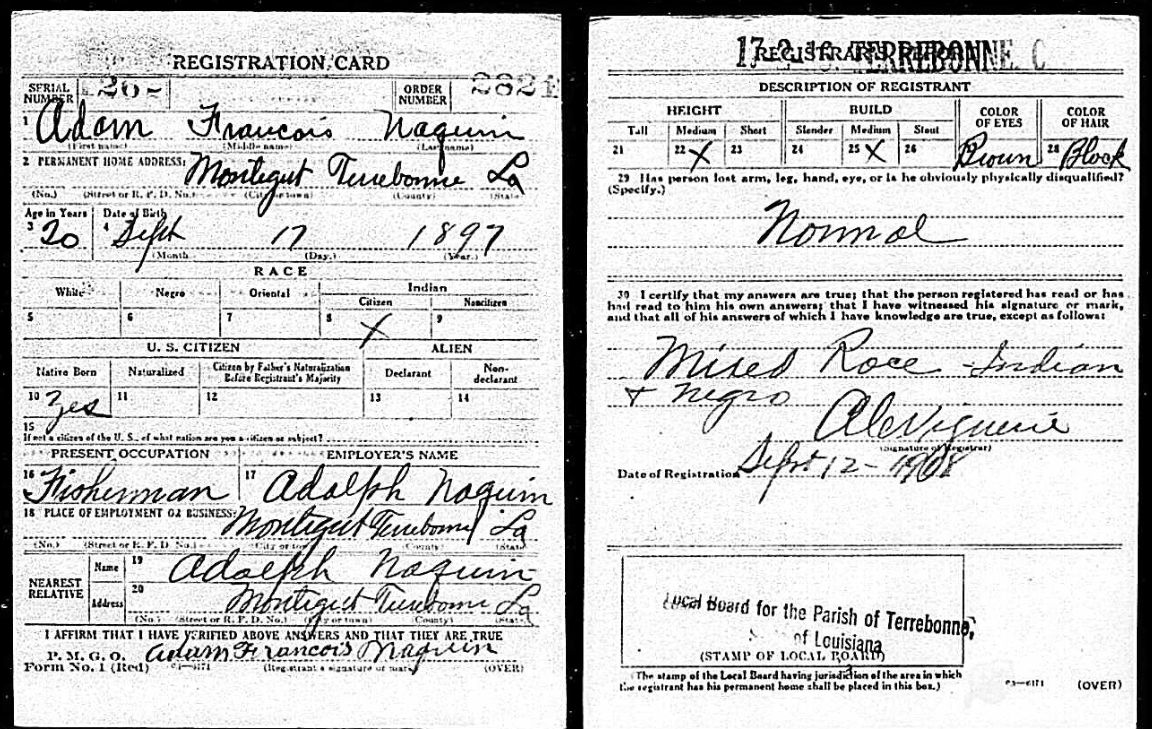 REGISTRATION CARD
SERIAL NUMBER 26- ORDER NUMBER 2824
1 Adam Francois Naquin
(First name) (Middle name) (Last name)
2 PERMANENT HOME ADDRESS: Montegut Terrebonne La
(No.) (Street or R. F. D. No.) (City or town) (County) (State)
Age in Years Date of Birth
3 20 4 Sept 17 1897
(Month.) (Day.) (Year.)
RACE
White Negro Oriental Indian
Citizen Noncitizen
5 6 7 8 X 9
U. S. CITIZEN ALIEN
Native Born Naturalized Citizen by Father's Naturalization Before Registrant's Majority Declarant Non-declarant
10 Yes 11 12 13 14
15
If not a citizen of the U. S., of what nation are you a citizen or subject?
PRESENT OCCUPATION EMPLOYER'S NAME
16 Fisherman 17 Adolph Naquin
18 PLACE OF EMPLOYMENT OR BUSINESS: Montegut Terrebonne La
(No.) (Street or R. F. D. No.) (City or town) (County) (State)
NEAREST RELATIVE Name 19 Adolph Naquin
Address 20 Montegut Terrebonne La
(No.) (Street or R. F. D. No.) (City or town) (County) (State)
I AFFIRM THAT I HAVE VERIFIED ABOVE ANSWERS AND THAT THEY ARE TRUE
P. M. G. O.
Form No. 1 (Red) 03—6171 Adam Francois Naquin
(Registrant's signature or mark) (OVER)
TERREBONNE, C
DESCRIPTION OF REGISTRANT
HEIGHT BUILD COLOR OF EYES COLOR OF HAIR
Tall Medium Short Slender Medium Stout
21 22 X 23 24 25 X 26 Brown 28 Black
29 Has person lost arm, leg, hand, eye, or is he obviously physically disqualified?
(Specify.)
Normal
30 I certify that my answers are true; that the person registered has read or has
had read to him his own answers; that I have witnessed his signature or mark,
and that all of his answers of which I have knowledge are true, except as follows:
Mixed Race - Indian
+ Negro
Viguerie
(Signature of Registrar)
Date of Registration Sept 12 - 1918
Local Board for the Parish of Terrebonne,
of Louisiana
(STAMP OF LOCAL BOARD)
(The stamp of the Local Board having jurisdiction of the area in which
the registrant has his permanent home shall be placed in this box.)
03—6171 (OVER)